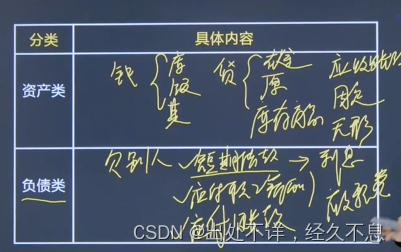 分类 具体内容
资产类
钱 库 货 在途 应收账款
银 原 固定
其 库存商品 无形
负债类
欠别人 短期借款 → 利息
应付职工薪酬
应付账款
CSDN @出处不详，经久不息